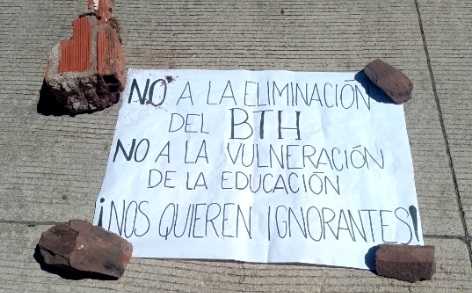 NO A LA ELIMINACIÓN
DEL BTH
NO A LA VULNERACIÓN
DE LA EDUCACIÓN
¡NOS QUIEREN IGNORANTES!